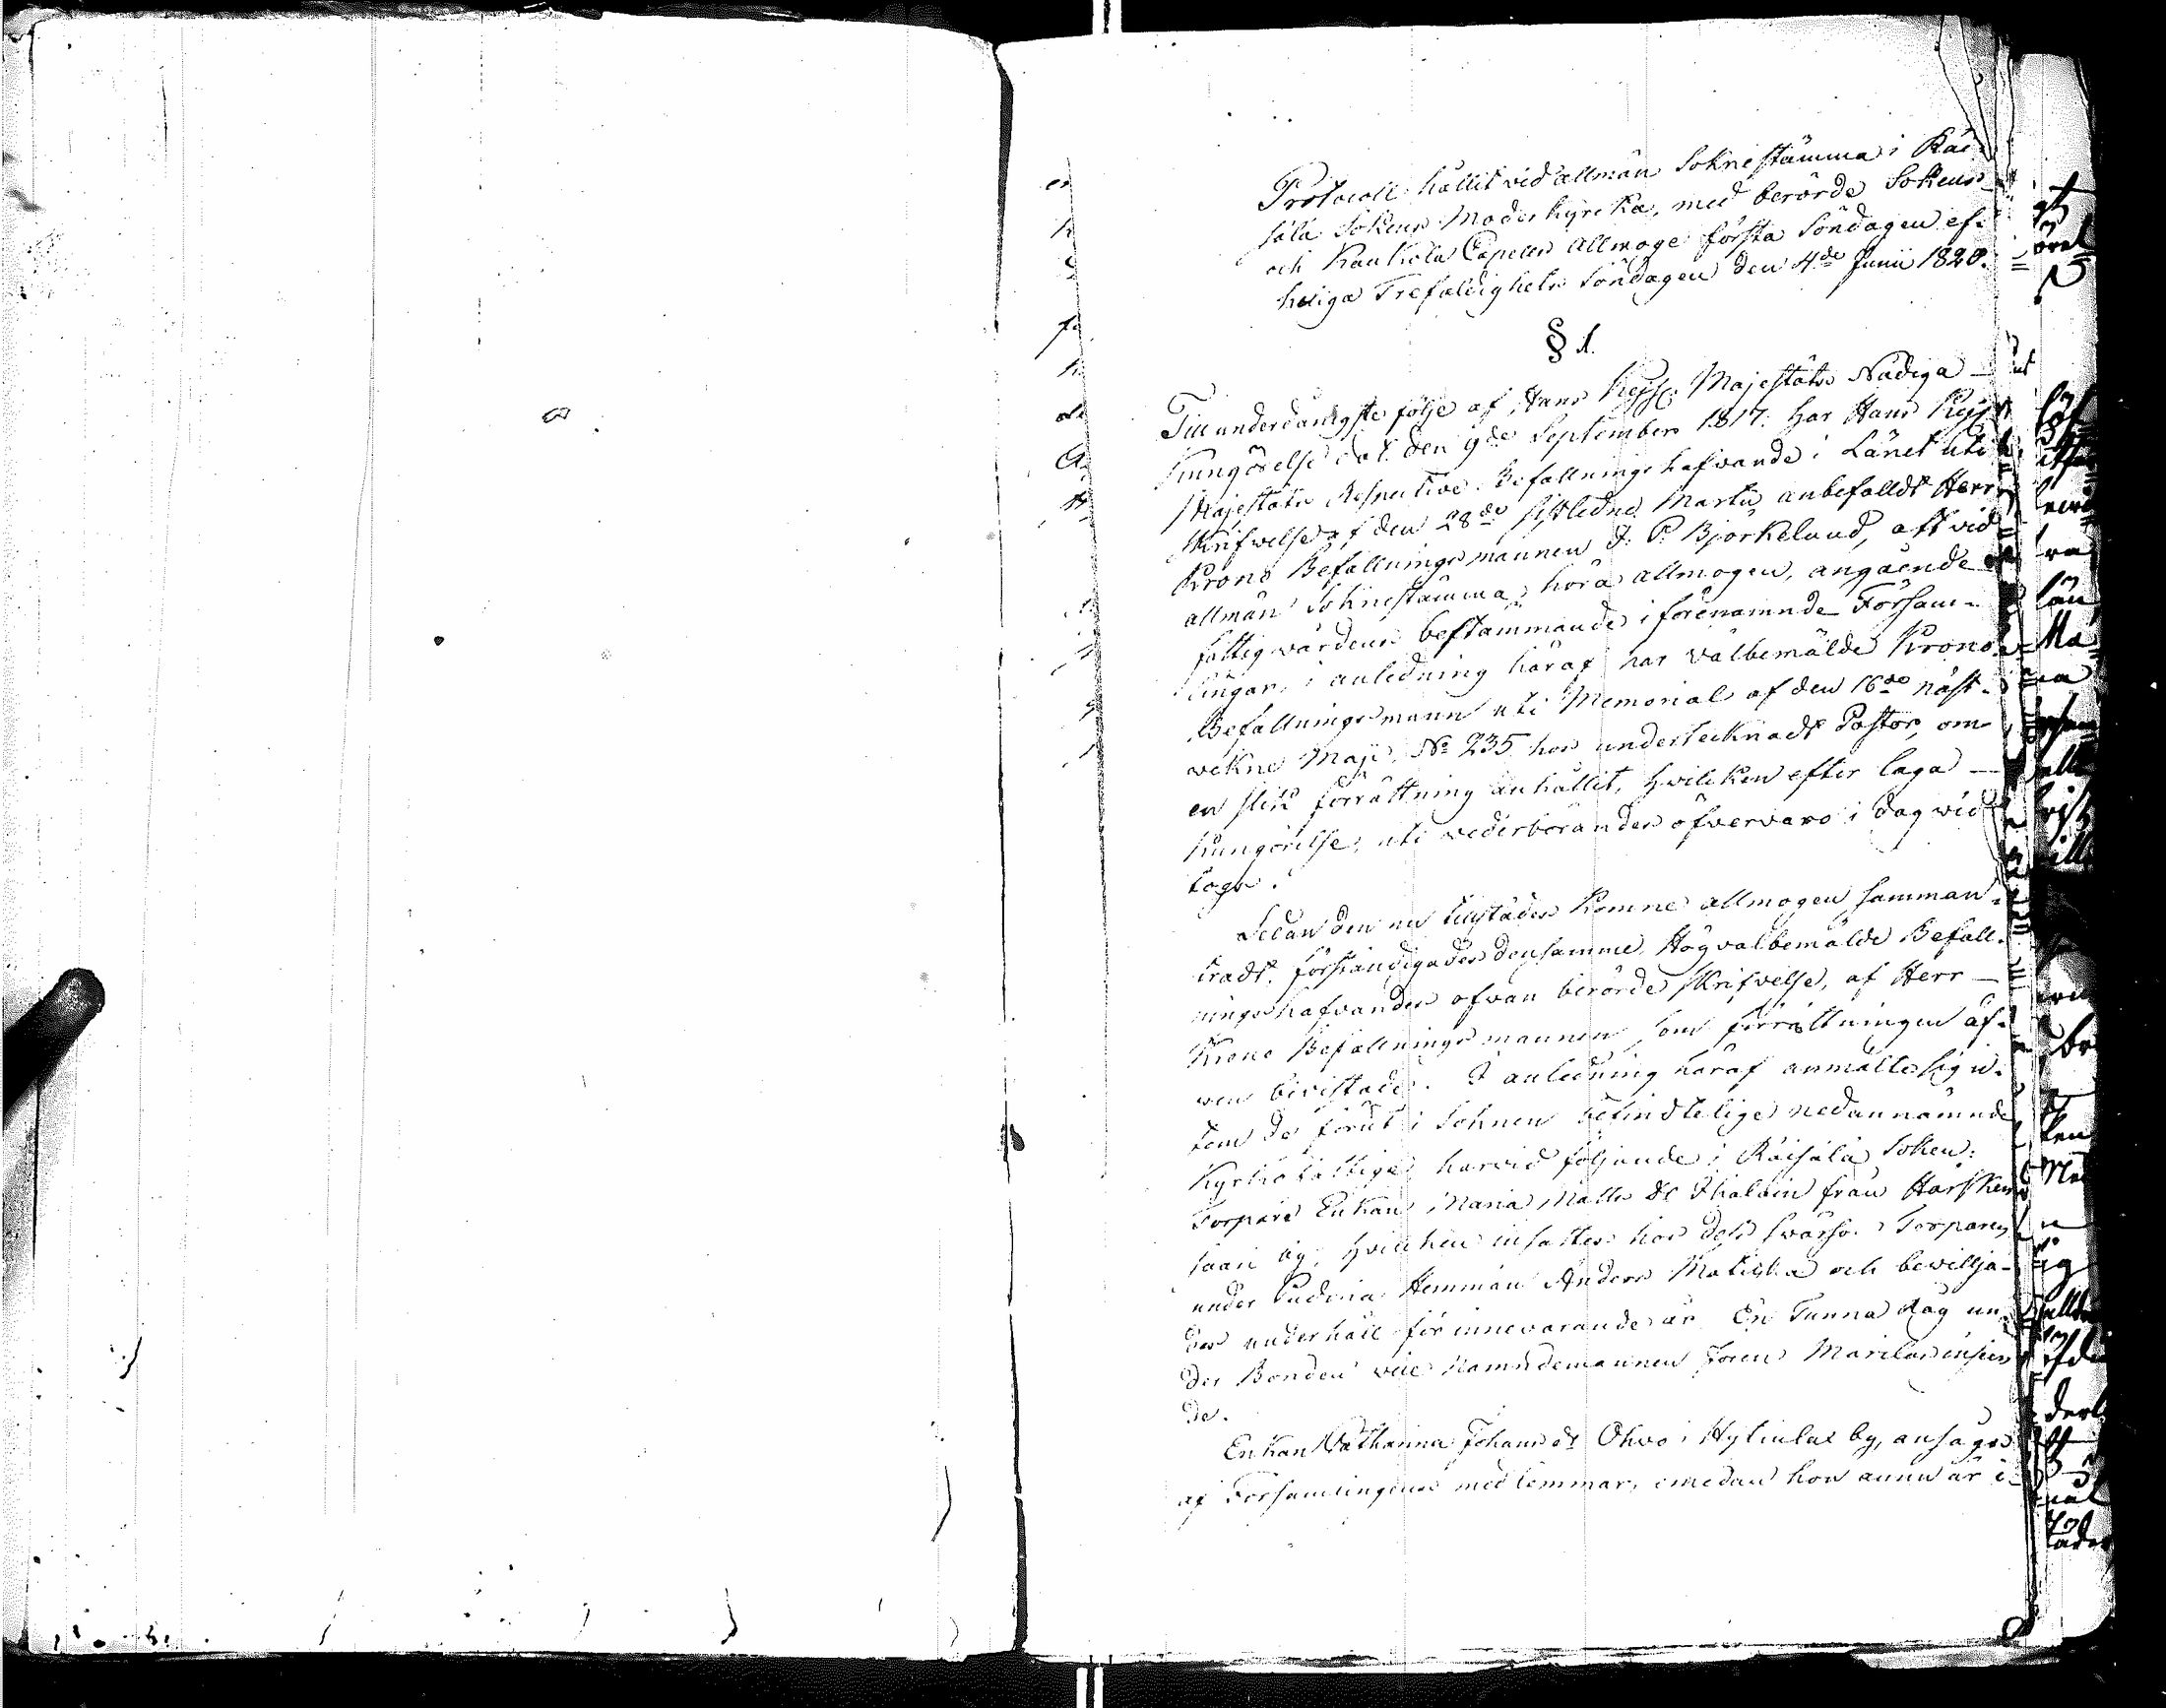 Protocoll hållit vid allmän Sokne stämma i Räi-
sälä Sokens Moder kyrcka, med berörde Sokens
och Kaukola Capells Allmoge första Söndagen ef.
heliga Trefaldighets Söndagen den 4de Junii 1820.
§ 1.
Till underdånigste följe af Hans Kejs: Majestäts Nådiga
Kungörelse dat. den 9de September 1817. har Hans Kejs
Majestäts Respective Befallningshafvande i Länet uti
Skrifwelse af den 28de sistledne Martii anbefalldt Herr
Krono Befallningsmannen J. P. Björkelund, att vid
allmän Soknestämma höra allmogen, angående
fattigvårdens bestämmande i förenämnde Försam-
lingar, i anledning häraf har välbemälde Krono
Befallningsmann uti Memorial af den 16de näst-
vekne Maji, No 235 hos undertecknadt Pastor, om
en slik förrättning anhållit, hvilken efter laga
kungörelse, uti vederbörandes öfvervaro i dag vid
togs.
Sedan den nu tillstädes komne allmogen samman-
trädt, förständigades densamme Högvälbemälde Befall-
ningshafvandes ofvan berörde Skrifvelse, af Herr
Krono Befallningsmannen, som förrättningen äf-
ven bivistade. I anledning häraf anmälte sig u-
tom de förut i Soknen befindtelige nedannämnde
Kyrko fattige härvid följande i Räisälä Soken:
Torpare Enkan Maria Matts dr Ihalain från Härsken
saari by, hvilken insattes hos dess svärson Torparen
under Hemman Anders och bevilja-
des underhåll för innevarande år En Tunna Råg un-
der Bonden och Nämndemannen
de.
Enkan Catharina Johans dr Ohvo i by, ansågs
af Församlingens medlemmar, emedan hon ännu är i